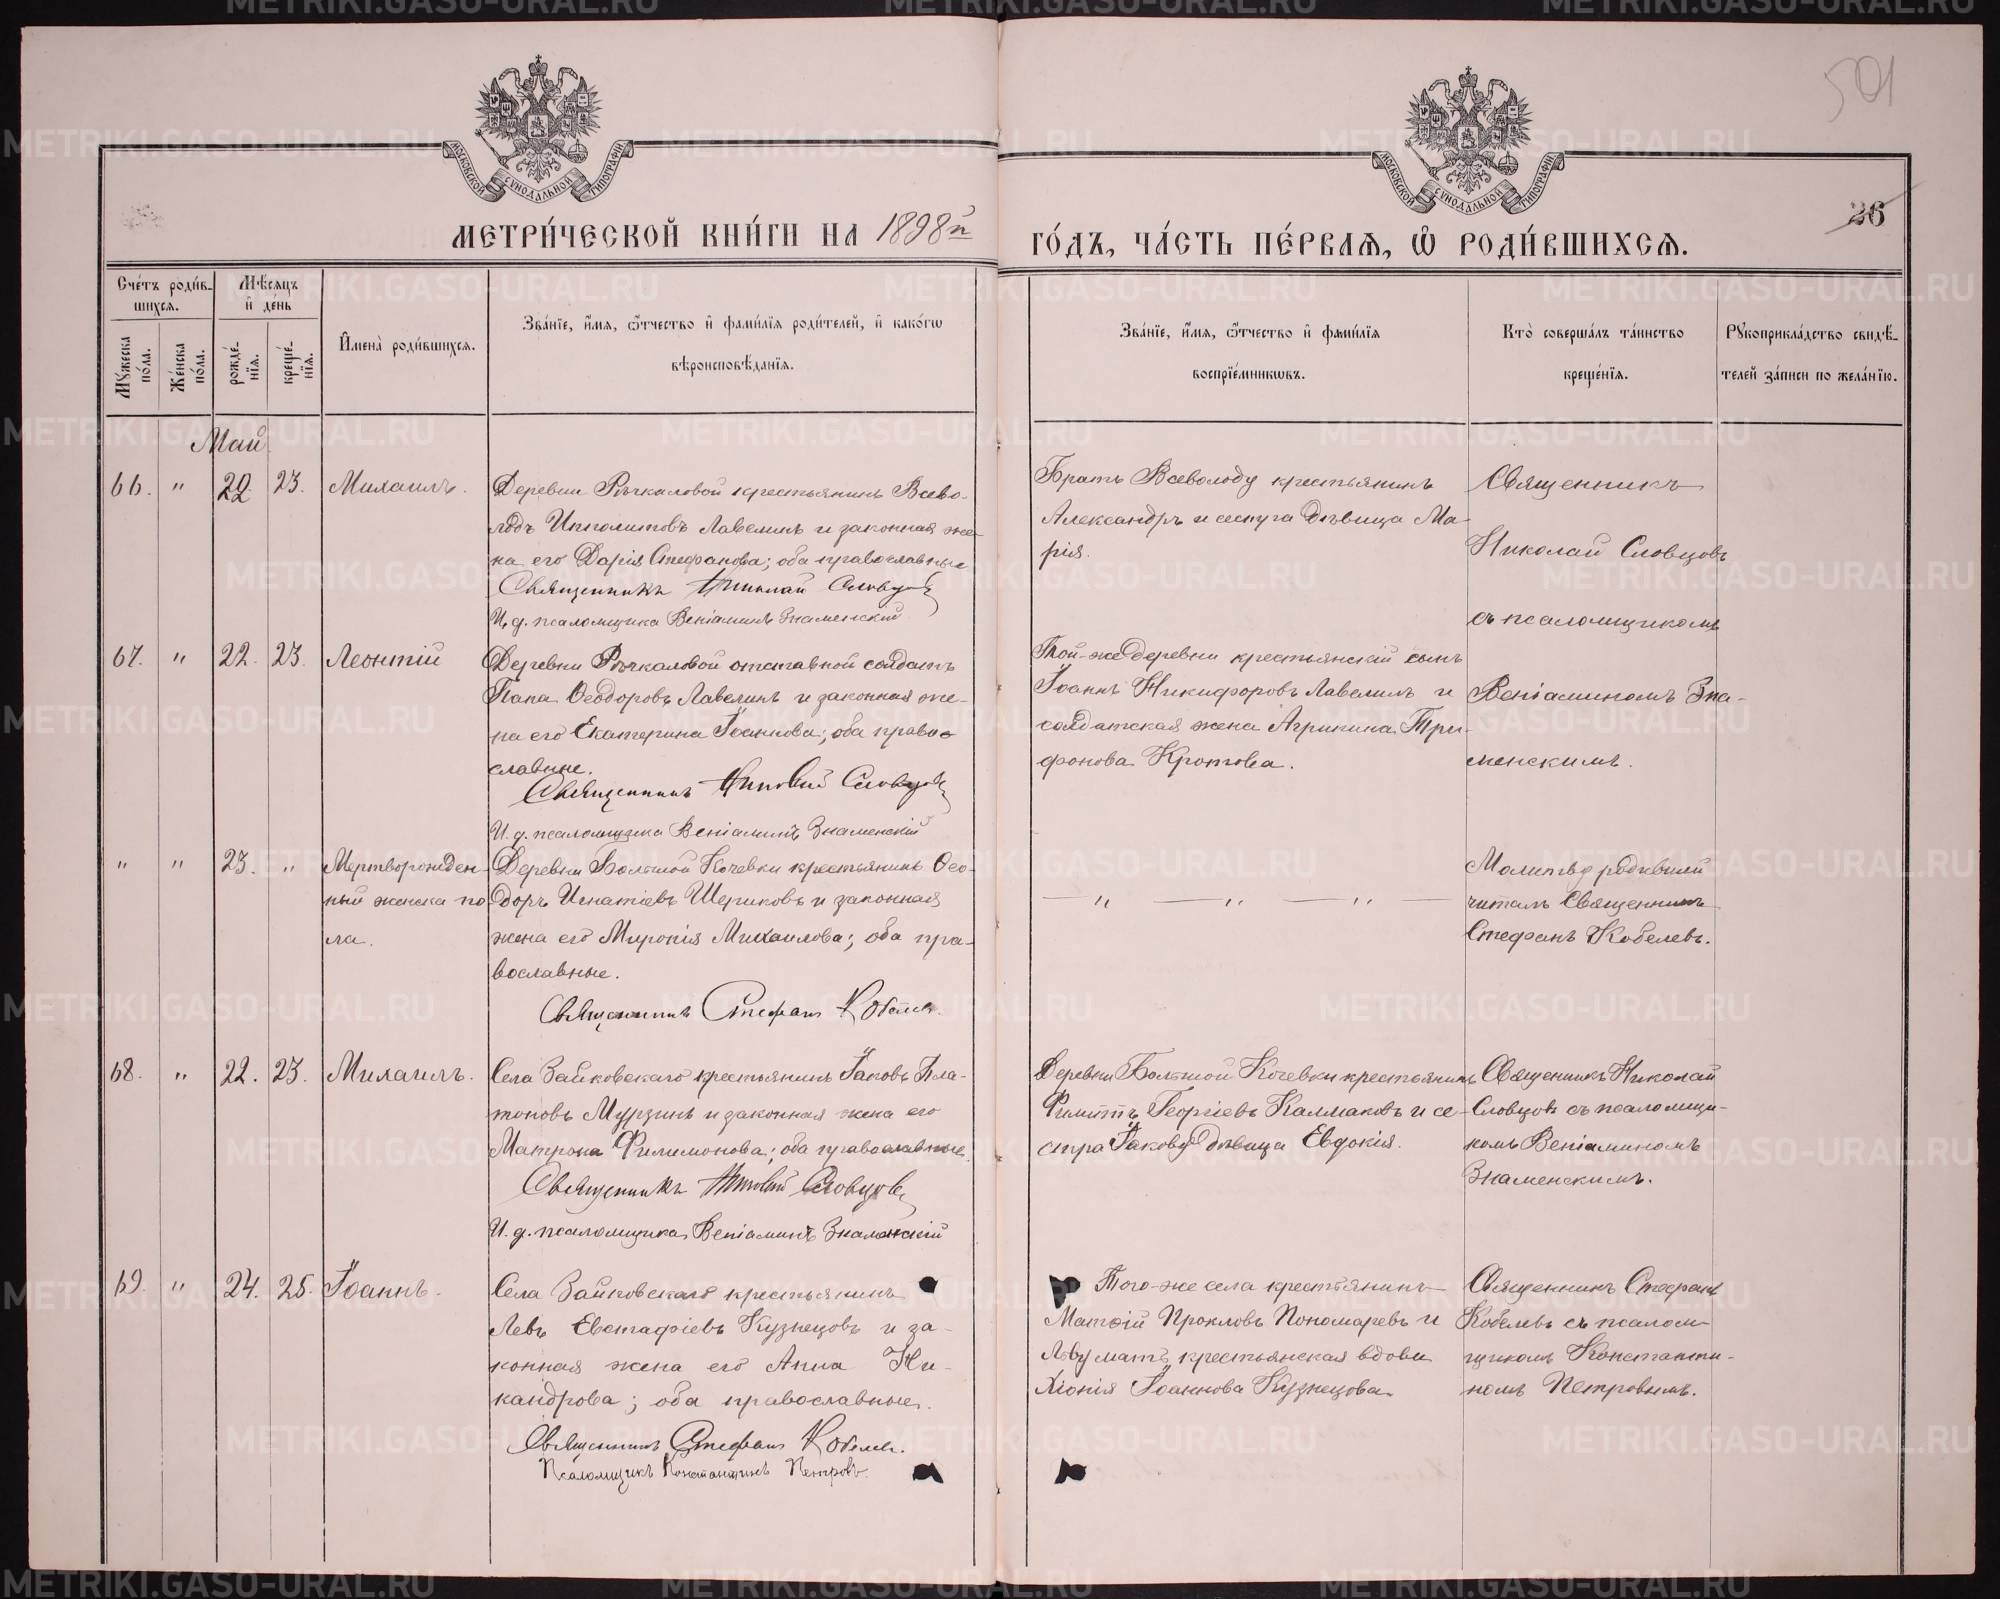 501
МОСКОВСКОЙ СѴНОДАЛЬНОЙ ТИПОГРАФІИ
МОСКОВСКОЙ СѴНОДАЛЬНОЙ ТИПОГРАФІИ
26
МЕТРИ́ЧЕСКОЙ КНИ́ГИ НА 1898й
ГО́ДЪ, ЧА́СТЬ ПЕ́РВАЯ, Ѡ РОДИ́ВШИХСЯ.
Сче́тъ роди́в-
шихся.
Мѣсяцъ
и де́нь
Му́жеска по́ла.
Же́нска по́ла.
рожде́-
нія.
креще́-
нія.
Имена̀ роди́вшихся.
Зва́ніе, и́мя, ѻ́тчество и фами́лія роди́телей, и како́гѡ
вѣроисповѣ́данія.
Зва́ніе, и́мя, ѻ́тчество и фами́лія
воспріе́мникѡвъ.
Кто̀ соверша́лъ та́инство
креще́нія.
Рукоприкла́дство свидѣ́-
телей за́писи по жела́нію.
Май
66. " 22 23. Михаилъ.
Деревни Рѣчкаловой крестьянинъ Всево-
лодъ Ипполитовъ Лавелинъ и законная же-
на его Дарія Стефанова; оба православные
Священникъ Николай Словцовъ
И. д. псаломщика Веніаминъ Знаменскій
Братъ Всеволоду крестьянинъ
Александръ и сестра дѣвица Ма-
рія.
Священникъ
Николай Словцовъ
съ псаломщикомъ
67. " 22. 23. Леонтій
Деревни Рѣчкаловой отставной солдатъ
Папа Ѳеодоровъ Лавелинъ и законная же-
на его Екатерина Іоаннова; оба право-
славные.
Священникъ Николай Словцовъ
И. д. псаломщика Веніаминъ Знаменскій
Той-же деревни крестьянскій сынъ
Іоаннъ Никифоровъ Лавелинъ и
солдатская жена Агрипина Три-
фонова Кротова.
Веніаминомъ Зна-
менскимъ.
" " 23. " Мертворожден-
ный женска по-
ла.
Деревни Большой Кочевки крестьянинъ Ѳео-
доръ Игнатіевъ Шериковъ и законная
жена его Миронія Михаилова; оба пра-
вославные.
Священникъ Стефанъ Кобелевъ.
— " — " — " —
Молитву родившей
читалъ Священникъ
Стефанъ Кобелевъ.
68. " 22. 23. Михаилъ.
Села Зайковскаго крестьянинъ Іаковъ Пла-
тоновъ Мурзинъ и законная жена его
Матрона Филимонова; оба православные.
Священникъ Николай Словцовъ
И. д. псаломщика Веніаминъ Знаменскій
Деревни Большой Кочевки крестьянинъ
Георгіевъ Калмаковъ и се-
стра Іакову дѣвица Евдокія.
Священникъ Николай
Словцовъ съ псаломщи-
комъ Веніаминомъ
Знаменскимъ.
69. " 24. 25. Іоаннъ.
Села Зайковскаго крестьянинъ
Левъ Евстафіевъ Кузнецовъ и за-
конная жена его Анна Ни-
кандрова; оба православные.
Священникъ Стефанъ Кобелевъ.
Псаломщикъ Константинъ Петровъ.
Того-же села крестьянинъ
Матѳій Прокловъ Пономаревъ и
Льву мать крестьянская вдова
Хіонія Іоаннова Кузнецова.
Священникъ Стефанъ
Кобелевъ съ псалом-
щикомъ Константи-
номъ Петровымъ.